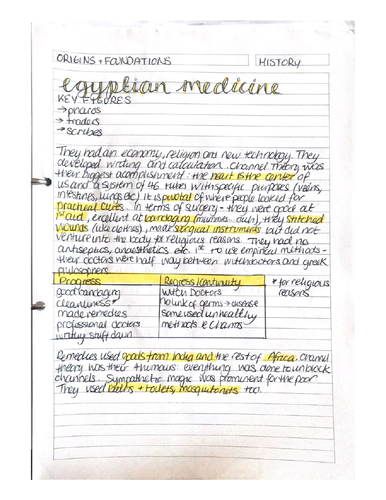 ORIGINS + FOUNDATIONS HISTORY
egyptian medicine
KEY FIGURES
→ pharos
→ traders
→ scribes
They had an economy, religion and new technology. They
developed writing and calculation. Channel Theory was
their biggest acomplishment: the heart is the center of
us and a system of 46 tubes with specific purposes (veins,
intestines, lungs etc). It is pivotal of where people looked for
practical cures. In terms of surgery - they were good at
1st aid, excellent at bandaging (mummies duh), they stitched
wounds (like clothes), metal surgical instruments but did not
venture into the body for religious reasons. They had no
antiseptics, anaesthetics etc. 1st to use empirical methods -
their doctors were half way between witchdoctors and greek
philosophers.
Progress Regress/Continuity * for religious
good bandaging Witch Doctors reasons
cleanliness* no link of germs → disease
made remedies some used unhealthy
professional doctors methods & charms
writing stuff down
Remedies used goods from India and the rest of Africa. Channel
theory was their 4 humours everything was done to unblock
channels. Sympathetic magic was prominent for the poor
They used baths + toilets, mosquito nets too.